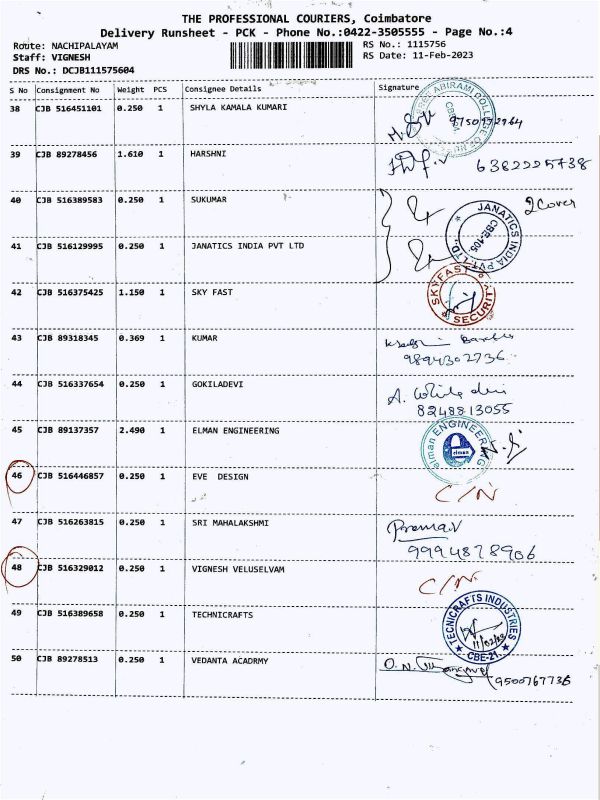 THE PROFESSIONAL COURIERS, Coimbatore
Delivery Runsheet - PCK - Phone No.:0422-3505555 - Page No.:4
Route: NACHIPALAYAM RS No.: 1115756
Staff: VIGNESH RS Date: 11-Feb-2023
DRS No.: DCJB111575604
S No Consignment No Weight PCS Consignee Details Signature
38 CJB 516451101 0.250 1 SHYLA KAMALA KUMARI
ABIRAMI COLLEGE OF
39 CJB 89278456 1.610 1 HARSHNI 6382225738
40 CJB 516389583 0.250 1 SUKUMAR 2 Cover
JANATICS INDIA PVT LTD., CBE-105.
41 CJB 516129995 0.250 1 JANATICS INDIA PVT LTD
42 CJB 516375425 1.150 1 SKY FAST SKYFAST SECURITY
43 CJB 89318345 0.369 1 KUMAR
9894302736
44 CJB 516337654 0.250 1 GOKILADEVI
8248813055
45 CJB 89137357 2.490 1 ELMAN ENGINEERING elman ENGINEERING elman
46 CJB 516446857 0.250 1 EVE DESIGN C/N
47 CJB 516263815 0.250 1 SRI MAHALAKSHMI Prema.V
9994878906
48 CJB 516329012 0.250 1 VIGNESH VELUSELVAM C/N
49 CJB 516389658 0.250 1 TECHNICRAFTS TECNICRAFTS INDUSTRIES 11/02/23 CBE-21
50 CJB 89278513 0.250 1 VEDANTA ACADRMY
9500767736